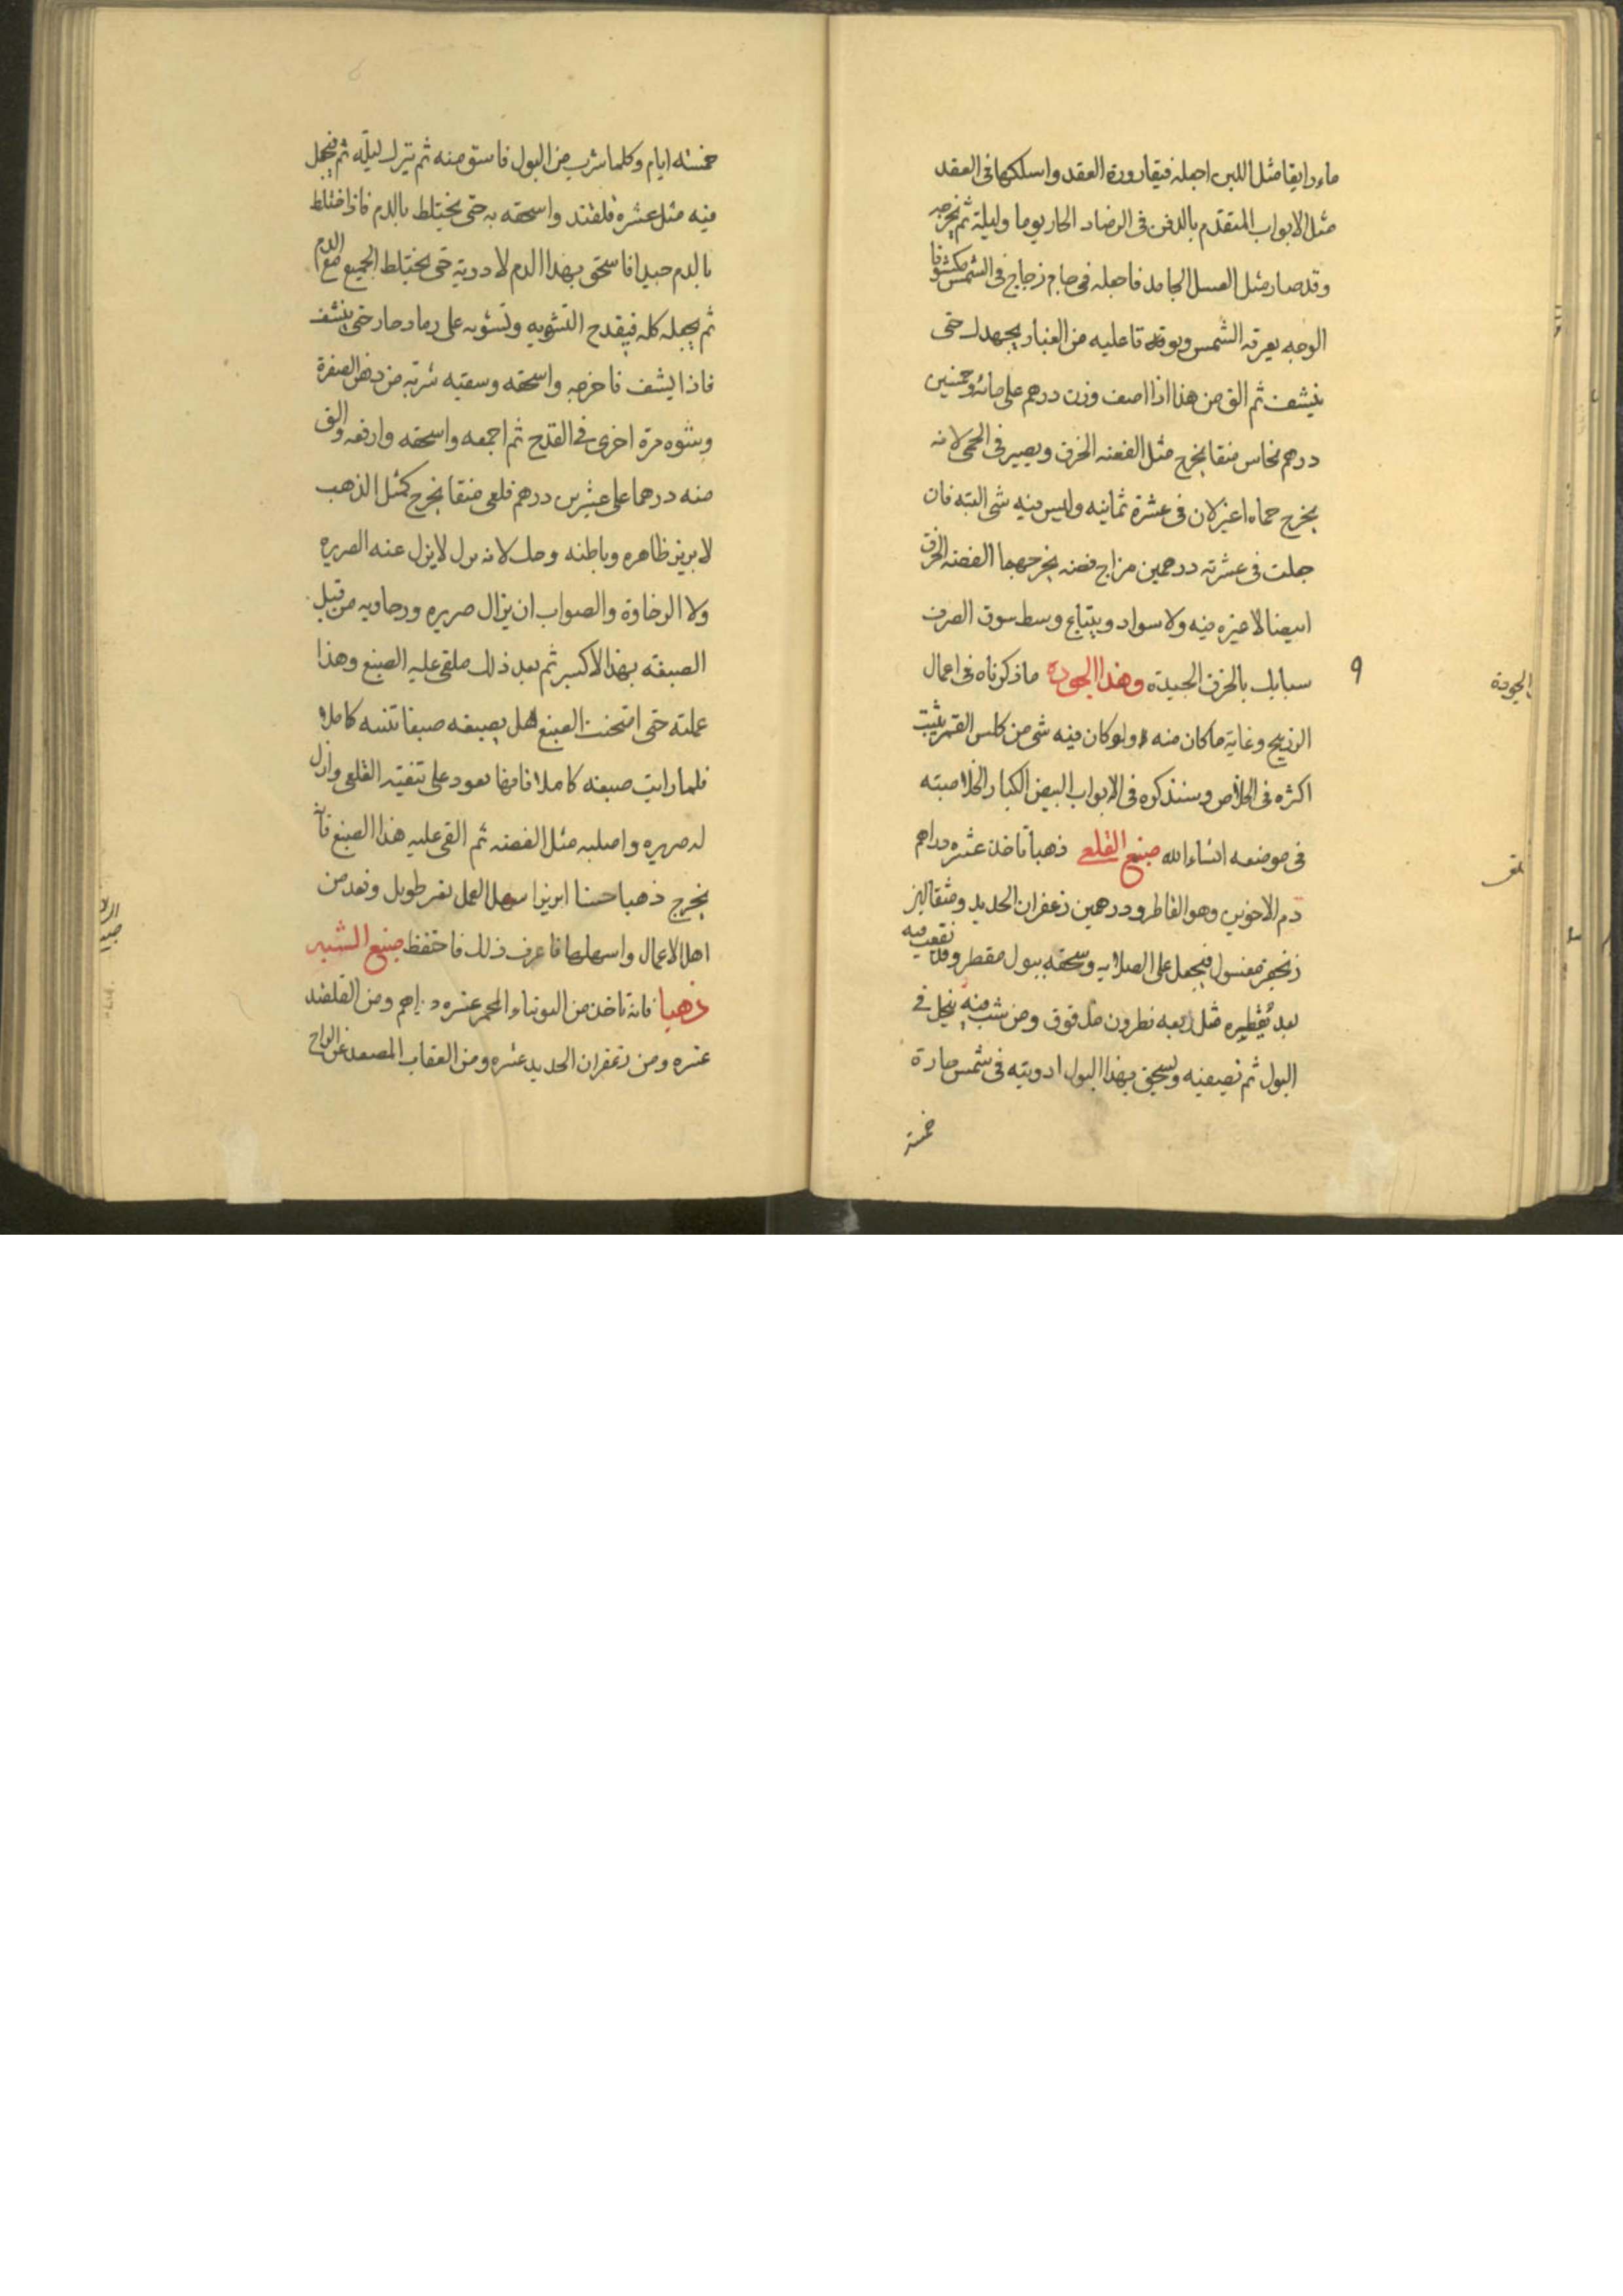 ماء رايقا مثل اللبن اجعله في قارورة العقد واسلكها في العقد
مثل الابواب المتقدم بالدفن في الرماد الحار يوما وليلة ثم نخرجه
وقد صار مثل العسل الجامد فاجعله في جام زجاج في الشمس مكشوفا
الوجه يعرقه الشمس وبوقه عليه من الغبار بجهدك حتى
ينشف ثم الق من هذا اذا وزن درهم على مائه وخمسين
درهم نحاس منقا يخرج مثل الفضه الحرق ويصير في الحمى لانه
يخرج حماه اغبر لان في عشرة ثمانيه وليس فيه شي البته فان
جعلت في عشرته درهمين مزاج فضه يخرجهما الفضه الحرق
ابيضا لا غبره فيه ولا سواد ويبتاع وسط سوق الصرف
سبايك بالحرق الجيدة وهذا الجوده ما ذكرناه في اعمال
الزرنيخ وغاية ما كان منه ولو كان فيه شي من كلس القمر يثبت
اكثره في الخلاص وسنذكره في الابواب البيض الكبار الخلاصيته
في موضعه انشاء الله صبغ القلعي ذهبا تاخذ عشره دراهم
دم الاخوين وهو القاطر ودرهمين زعفران الحديد ومثقالين
زنجفر مغسول فيجعل على الصلايه وسحقه ببول مقطر وقد نقعت فيه
بعد تقطيره مثل ربعه نطرون ومن شب منه ينحل في
البول ثم نصيفيه ويسحق بهذا البول ادويته في شمس حارة
خمسة
الجودة
خمسته ايام وكلما شرب من البول فاسق منه ثم يترك ليلة ثم فيجعل
فيه مثل عشره قلقند واسحقه به حتى يختلط بالدم فاذا اختلط
بالدم جيدا فاسحق بهذا الدم لادويته حتى يختلط الجميع مع الدم
ثم يجعله كله في قدح التشويه وتشويه على رماد حار حتى ينشف
فاذا ينشف فاخرجه واسحقه وسقيه شربه من دهن الصفرة
وشوه مرة اخرى في القدح ثم اجمعه واسحقه وارفعه والق
منه درهما على عشرين درهم قلعي منقا يخرج كمثل الذهب
لابريز ظاهره وباطنه لانه لا يزل عنه الصريره
ولا الرخاوة والصواب ان يزال صريره ورخاويه من قبل
الصبغه بهذا الاكسير ثم بعد ذلك ملقى عليه الصبغ وهذا
عملته حتى امتحنت الصبغ هل يصبغه صبغا كاملا
فلما رايت صبغه كاملا نعود على تنقيته القلعي وازل
له صريره واصلبه مثل الفضه ثم القى عليه هذا الصبغ فانه
يخرج ذهبا حسنا ابريزا سهل العمل طويل من
اهل الاعمال واسهلها فاعرف ذلك فاحتفظ صبغ الشبه
ذهبا فانه تاخذ من التوتياء المحمر عشره دراهم ومن القلقند
عشره ومن زعفران الحديد عشره ومن العقاب المصعد عن الزاج